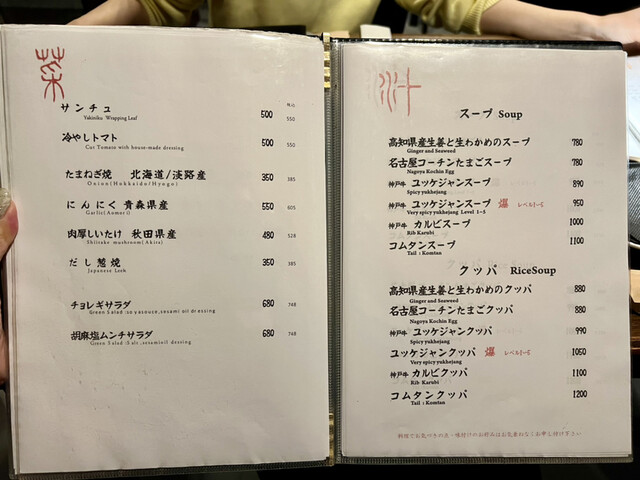 菜
税込
サンチュ 500 550
Yakiniku Wrapping Leaf
冷やしトマト 500 550
Cut Tomato with house-made dressing
たまねぎ焼 北海道/淡路産 350 385
Onion(Hokkaido/Hyogo)
にんにく 青森県産 550 605
Garlic(Aomori)
肉厚しいたけ 秋田県産 480 528
Shiitake mushroom(Akita)
だし葱焼 350 385
Japanese Leek
チョレギサラダ 680 748
Green Salad:soysouse,sesami oil dressing
胡麻塩ムンチサラダ 680 748
Green Salad:Salt,sesamioil dessing
汁
スープ Soup
高知県産生姜と生わかめのスープ 780
Ginger and Seaweed
名古屋コーチンたまごスープ 780
Nagoya Kochin Egg
神戸牛 ユッケジャンスープ 890
Spicy yukhejang
神戸牛 ユッケジャンスープ 爆 レベル1~5 950
Very spicy yukhejang Level 1~5
神戸牛 カルビスープ 1000
Rib Karubi
コムタンスープ 1100
Tail : Komtan
クッパ RiceSoup
高知県産生姜と生わかめのクッパ 880
Ginger and Seaweed
名古屋コーチンたまごクッパ 880
Nagoya Kochin Egg
神戸牛 ユッケジャンクッパ 990
Spicy yukhejang
ユッケジャンクッパ 爆 レベル1~5 1050
Very spicy yukhejang
神戸牛 カルビクッパ 1100
Rib Karubi
コムタンクッパ 1200
Tail : Komtan
料理でお気づきの点・味付けのお好みはお気兼ねなくお申し付け下さい